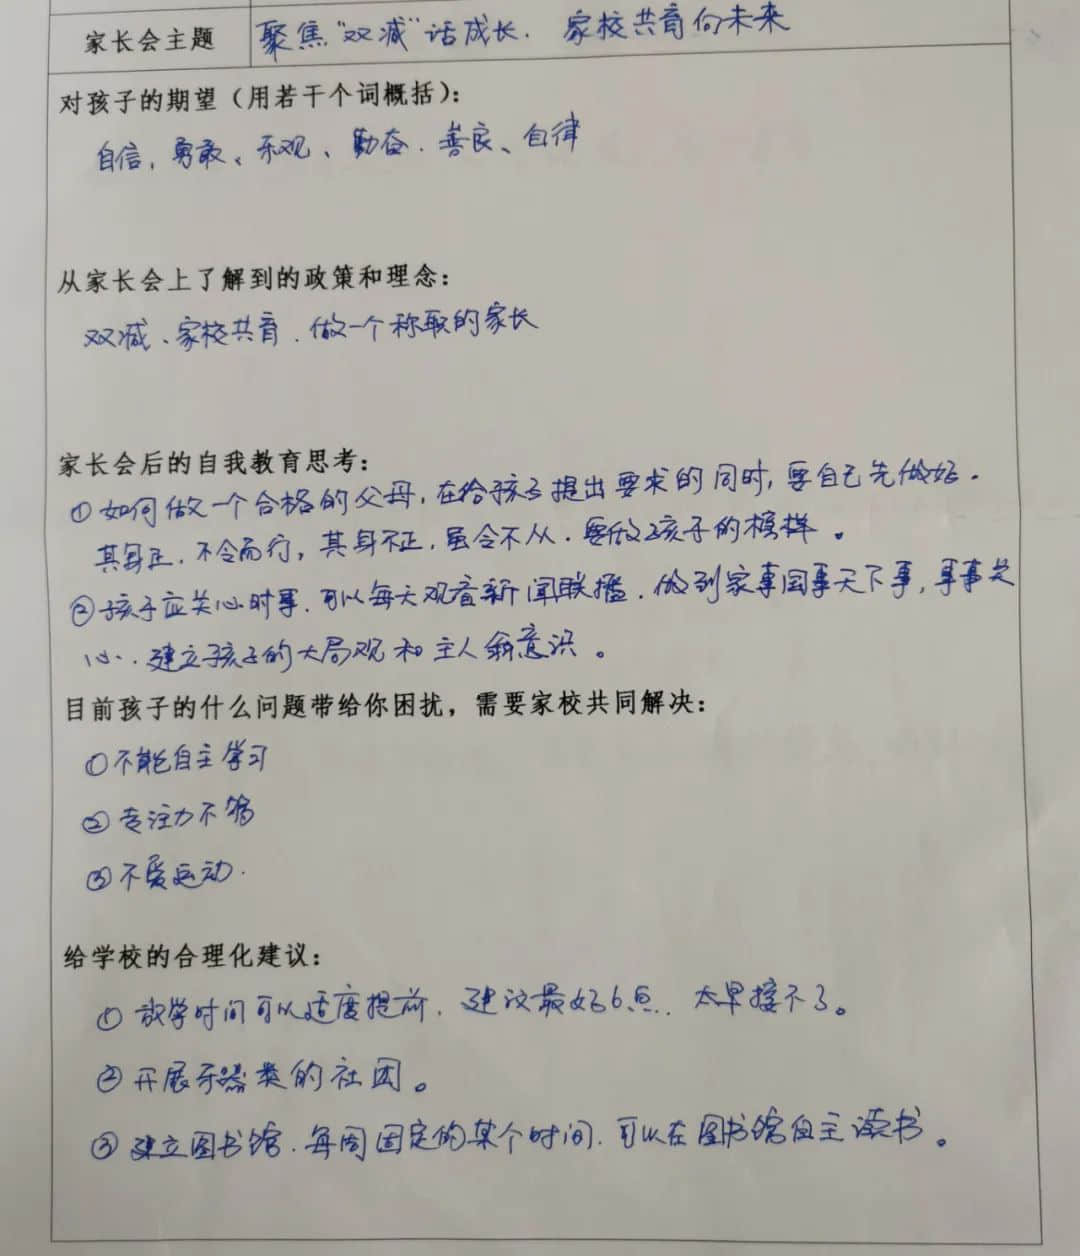 家长会主题 聚焦“双减”话成长. 家校共育向未来
对孩子的期望（用若干个词概括）：
自信, 勇敢、乐观、勤奋. 善良、自律
从家长会上了解到的政策和理念：
双减、家校共育. 做一个称职的家长
家长会后的自我教育思考：
①如何做一个合格的父母, 在给孩子提出要求的同时, 要自己先做好.
其身正. 不令而行, 其身不正. 虽令不从. 要做孩子的榜样。
②孩子应关心时事. 可以每天观看新闻联播. 做到家事国事天下事, 事事关
心. 建立孩子的大局观和主人翁意识。
目前孩子的什么问题带给你困扰，需要家校共同解决：
①不能自主学习
②专注力不够
③不爱运动.
给学校的合理化建议：
① 放学时间可以适度提前. 建议最好6点. 太早接不了。
② 开展乐器类的社团。
③ 建立图书馆. 每周固定的某个时间. 可以在图书馆自主读书。